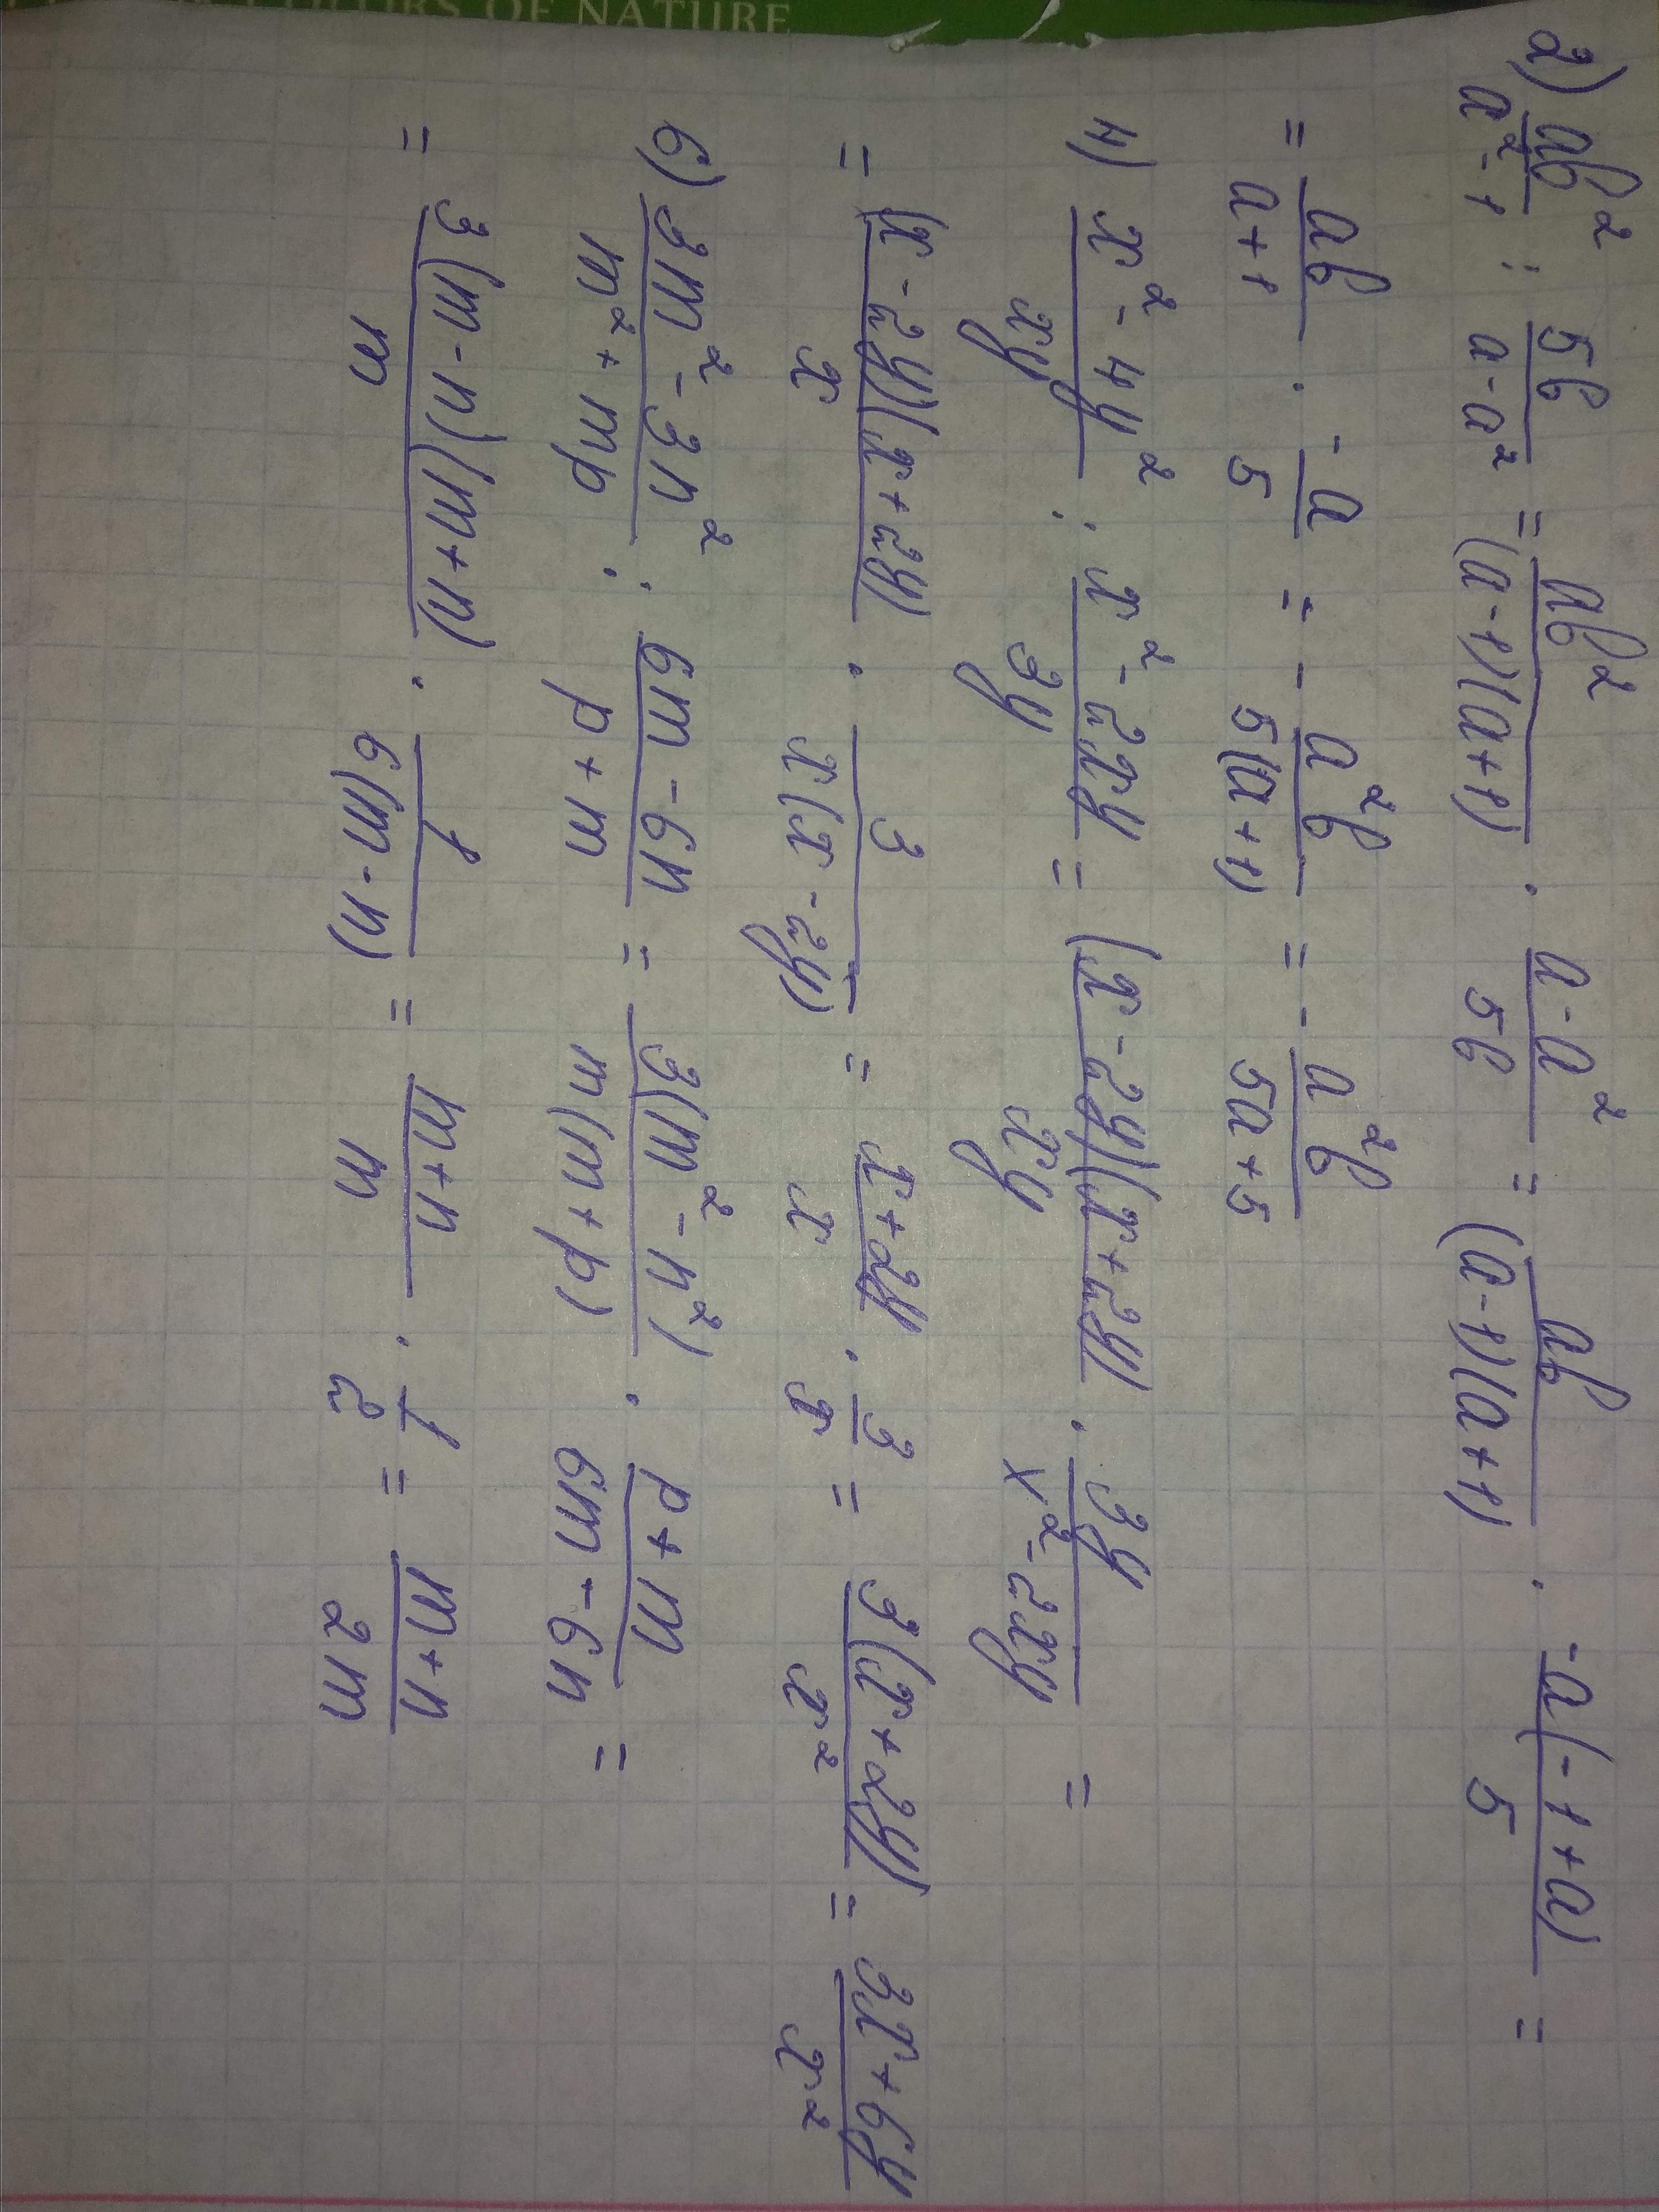 COLOURS OF NATURE
2) ab²/(a²-1) : 5b/(a-a²) = ab²/((a-1)(a+1)) · (a-a²)/5b = ab/((a-1)(a+1)) · -a(-1+a)/5 =
= ab/(a+1) · -a/5 = - a²b/(5(a+1)) = - a²b/(5a+5)
4) (x²-4y²)/xy : (x²-2xy)/3y = (x-2y)(x+2y)/xy · 3y/(x²-2xy) =
= (x-2y)(x+2y)/x · 3/(x(x-2y)) = (x+2y)/x · 3/x = 3(x+2y)/x² = (3x+6y)/x²
6) (3m²-3n²)/(m²+mp) : (6m-6n)/(p+m) = 3(m²-n²)/(m(m+p)) · (p+m)/(6m-6n) =
= 3(m-n)(m+n)/m · 1/(6(m-n)) = (m+n)/m · 1/2 = (m+n)/2m